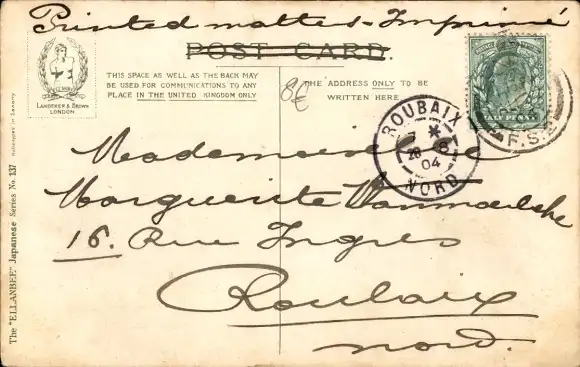 Printed matter - Imprimé
POST CARD.
THIS SPACE AS WELL AS THE BACK MAY
BE USED FOR COMMUNICATIONS TO ANY
PLACE IN THE UNITED KINGDOM ONLY
THE ADDRESS ONLY TO BE
WRITTEN HERE
LANDEKER & BROWN
LONDON
8€
HALF PENNY
F.S.
ROUBAIX
04
NORD
Mademoiselle
Marguerite
16. Rue Ingres
Roubaix
Nord.
The "ELLANBEE" Japanese Series No. 137